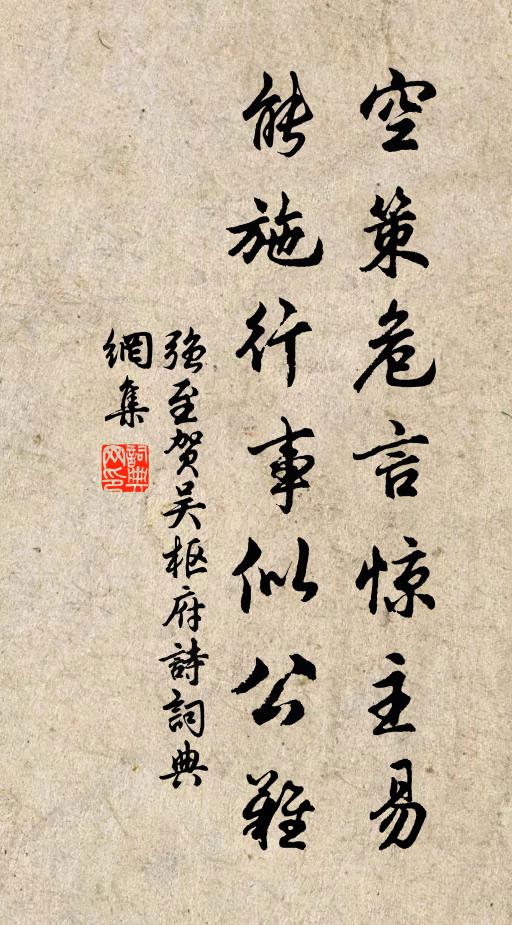 空策危言惊主易
能施行事似公難
强至贺吴枢府詩詞典
網集
詞典
网印